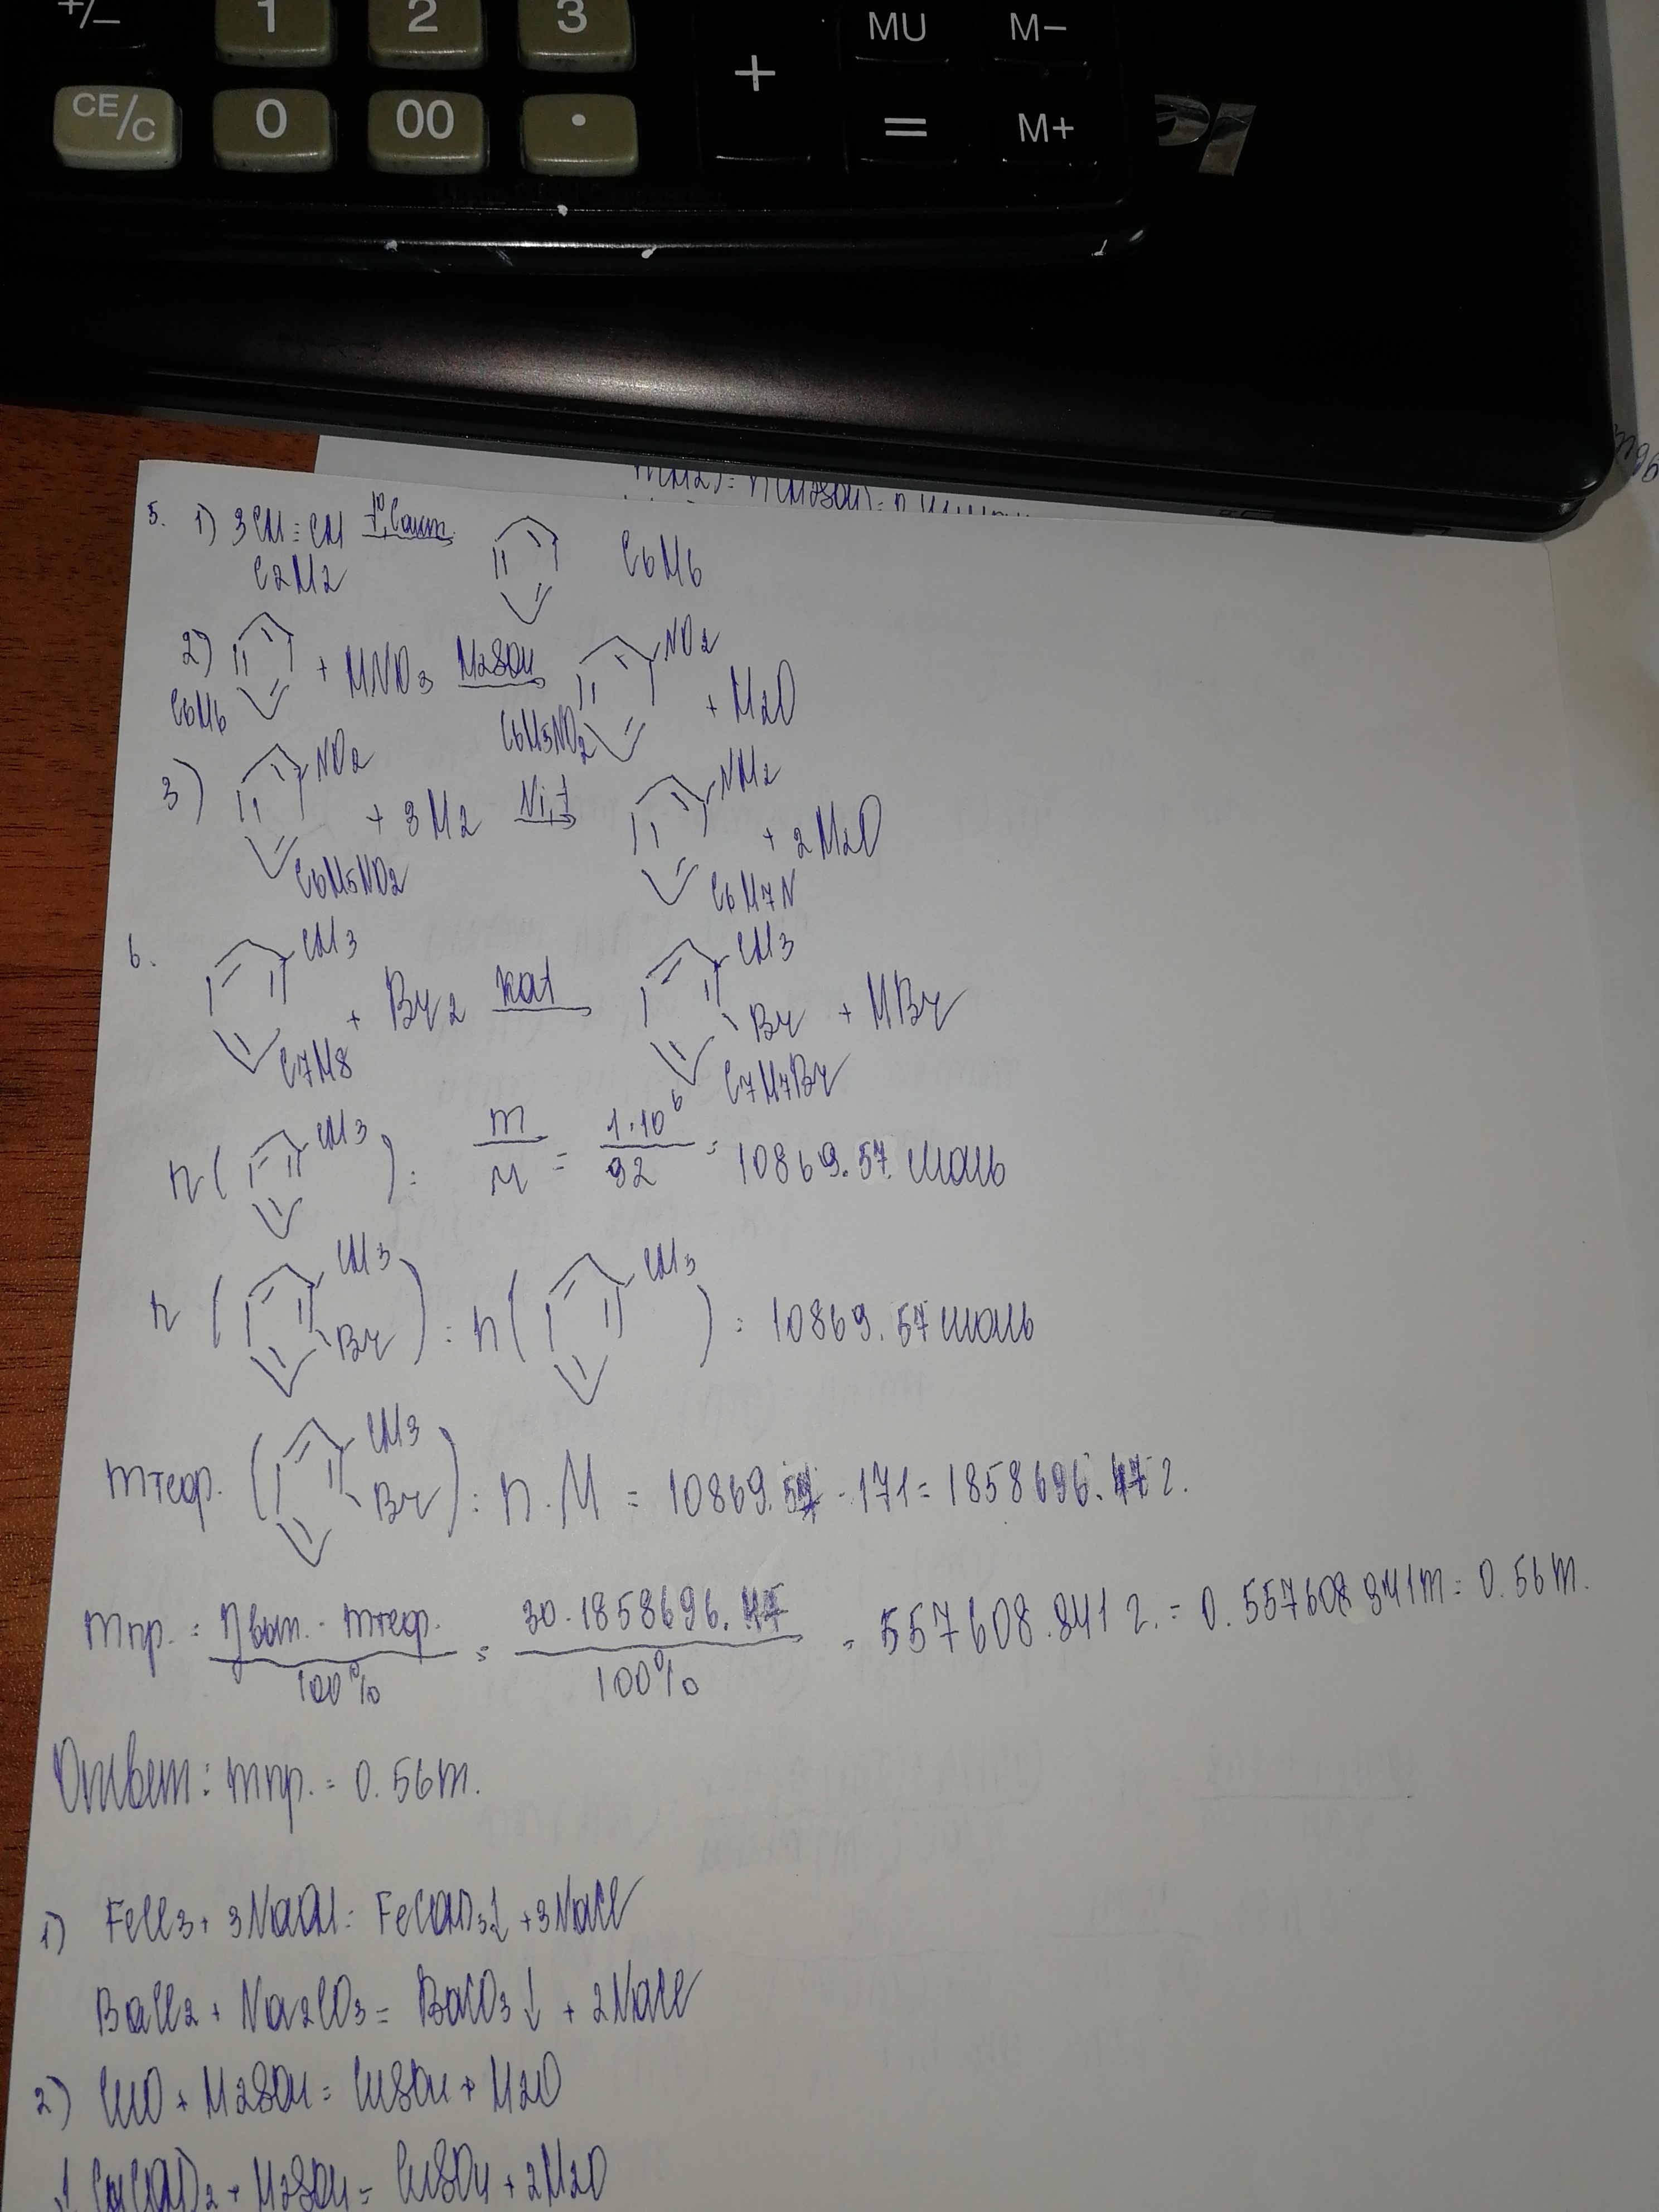 +/− 1 2 3 + MU M−
CE/C 0 00 • = M+
5. 1) 3CH≡CH t°, C акт. C6H6
C2H2
2) + HNO3 H2SO4 NO2 + H2O
C6H6 C6H5NO2
3) NO2 + 3H2 Ni, t NH2 + 2H2O
C6H5NO2 C6H7N
6. CH3 + Br2 kat CH3 Br + HBr
C7H8 C7H7Br
n( CH3 ) = m/M = 1·10⁶/92 = 10869.57 моль
n( CH3 Br ) = n( CH3 ) = 10869.57 моль
mтеор. ( CH3 Br ) = n·M = 10869.57 · 171 = 1858696.47 г.
mпр. = ηвых. · mтеор. / 100% = 30·1858696.47 / 100% = 557608.941 г. = 0.557608941 т = 0.56 т.
Ответ: mпр. = 0.56 т.
1) FeCl3 + 3NaOH = Fe(OH)3↓ + 3NaCl
BaCl2 + Na2CO3 = BaCO3↓ + 2NaCl
2) CuO + H2SO4 = CuSO4 + H2O
Cu(OH)2 + H2SO4 = CuSO4 + 2H2O